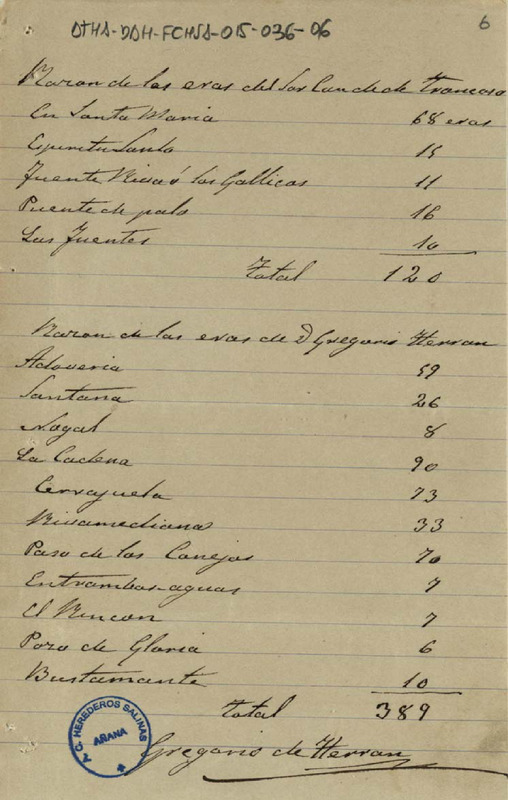 DTHA-DDH-FCHSA-015-036-06
6
Razon de las eras del Sor Conde de Troncoso
En Santa Maria 68 eras
Espiritu Santo 15
Fuente Rica ó los Gallicos 11
Puente de palo 16
Las Fuentes 10
Total 120
Razon de las eras de D Gregorio Herran
Adoveria 59
Santana 26
Nogal 8
La Cadena 90
Cervajuela 73
Ricamediana 33
Paso de los Conejos 70
Entrambas-aguas 7
El Rincon 7
Pozo de Gloria 6
Bustamante 10
Total 389
Gregorio de Herran
A.C. HEREDEROS SALINAS
AÑANA